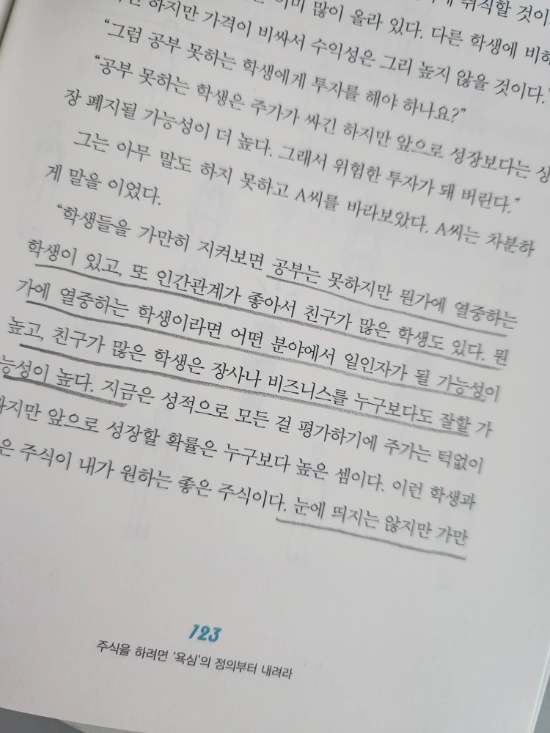 취직할 것이
하지만 가격이 비싸서 수익성은 그리 높지 않을 것이다.
많이 올라 있다. 다른 학생에 비하
“그럼 공부 못하는 학생에게 투자를 해야 하나요?”
“공부 못하는 학생은 주가가 싸긴 하지만 앞으로 성장보다는 상
장 폐지될 가능성이 더 높다. 그래서 위험한 투자가 돼 버린다.”
그는 아무 말도 하지 못하고 A씨를 바라보았다. A씨는 차분하
게 말을 이었다.
“학생들을 가만히 지켜보면 공부는 못하지만 뭔가에 열중하는
학생이 있고, 또 인간관계가 좋아서 친구가 많은 학생도 있다. 뭔
가에 열중하는 학생이라면 어떤 분야에서 일인자가 될 가능성이
높고, 친구가 많은 학생은 장사나 비즈니스를 누구보다도 잘할 가
능성이 높다. 지금은 성적으로 모든 걸 평가하기에 주가는 턱없이
지만 앞으로 성장할 확률은 누구보다 높은 셈이다. 이런 학생과
은 주식이 내가 원하는 좋은 주식이다. 눈에 띄지는 않지만 가만
123
주식을 하려면 '욕심'의 정의부터 내려라